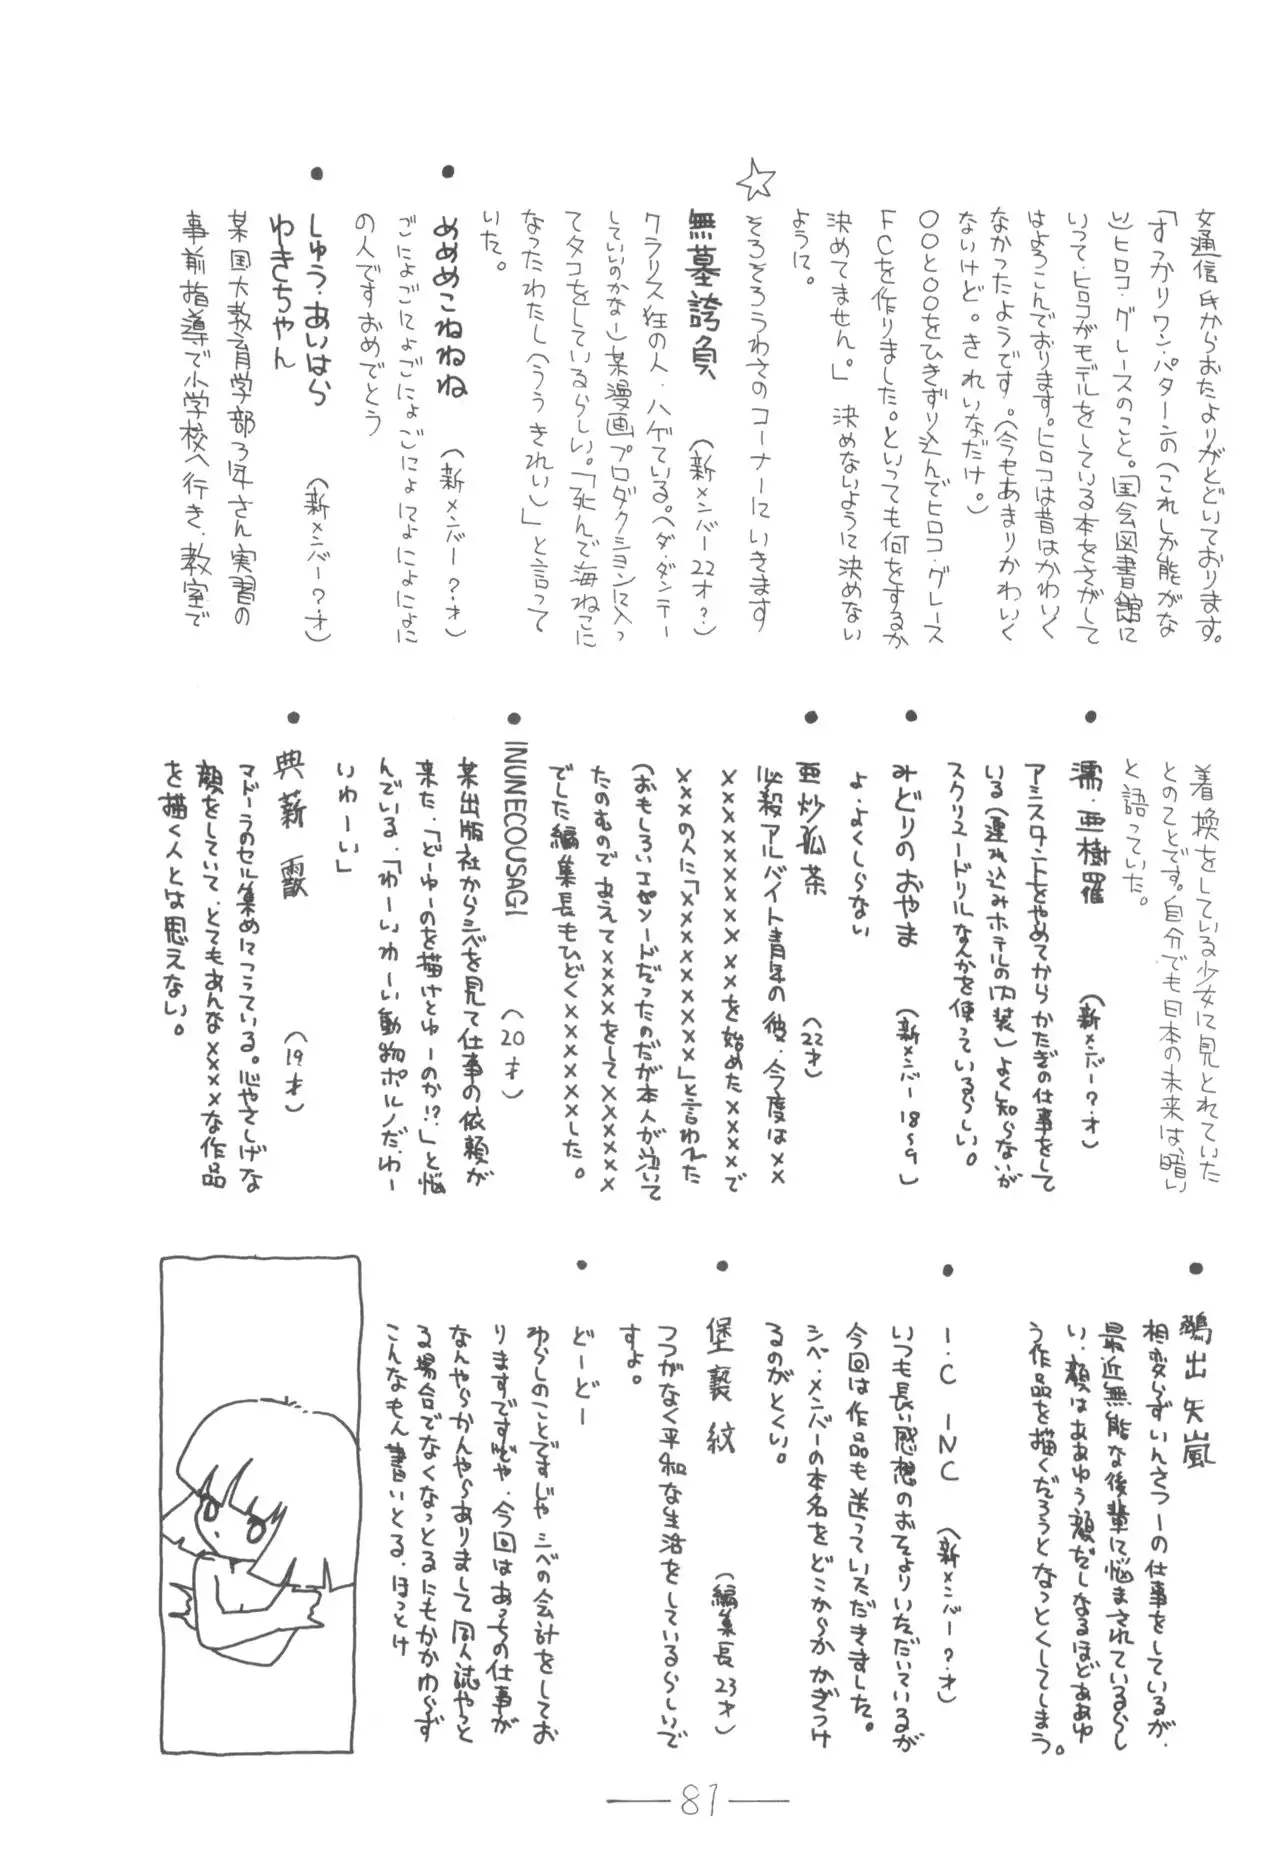 文通信氏からおたよりがとどいております。
「すっかりワンパターンの(これしか能がな
い)ヒロコ・グレースのこと。「国会図書館に
いって・ヒロコがモデルをしている本をさがして
はよろこんでおります。ヒロコは昔はかわいく
なかったようです。(今もあまりかわいく
ないけど。きれいなだけ。)
○○と○○をひきずり込んでヒロコ・グレース
FCを作りました。といっても何をするか
決めてません。」決めないように決めない
ように。
☆そろそろうわさのコーナーにいきます
無墓誇負(新メンバー22才?)
クラリス狂の人・ハゲている。(ダ・ダンテー
していいのかな)某漫画プロダクションに入っ
てタコをしているらしい。「死んで海ねこに
なったわたし(ううきれい)」と言って
いた。
•めめめこねねね(新メンバー?才)
ごにょごにょごにょごにょごにょにょにょに
の人ですおめでとう
•しゅう・あいはら
わきちゃん(新メンバー?才)
某国大教育学部3年さん実習の
事前指導で小学校へ行き、教室で
着換をしている少女に見とれていた
とのことです。自分でも日本の未来は「暗い」
と語っていた。
•濡・亜樹羅(新メンバー?才)
アシスタントをやめてからかたぎの仕事をして
いる(連れ込みホテルの内装)よく知らないが
スクリュードリルなんかを使っているらしい。
•みどりのおやま(新メンバー18~9)
よ・よくしらない
•亜炒孤茶(22才)
必殺アルバイト青年の彼・今度は××
×××××××××を始めた××××で
×××の人に「××××××××」と言われた
(おもしろいエピソードだったのだが本人が泣いて
たのむのであえて××××をして×××××
でした編集長もひどく××××××した。
•INUNECOUSAGI(20才)
某出版社からシベを見て仕事の依頼が
来た・「どーゆーのを描けとゆーのか!?」と悩
んでいる・「わーいわーい動物ポルノだ、わー
いわーい」
•典薪(19才)
マドーラのセル集めにこっている。心やさしげな
顔をしていて、とてもあんな××××な作品
を描く人とは思えない。
•鵺出矢嵐
相変らずいんさつーの仕事をしているが、
最近無能な後輩に悩まされているらし
い・顔はああゆう顔だしなるほどああゆ
う作品を描くだろうとなっとくしてしまう。
•I・C INC(新メンバー?才)
いつも長い感想のおてよりいただいているが
今回は作品も送っていただきました。
シベ・メンバーの本名をどこからかかぎつけ
るのがとくい。
•堡褻紋(編集長23才)
つつがなく平和な生活をしているらしいで
すよ。
•どーどー
わらしのことですじゃシベの会計をしてお
りますですじゃ・今回はあっちの仕事が
なんやらかんやらありまして同人誌やっと
る場合でなくなっとるにもかかわらず
こんなもん書いとる・ほっとけ
81